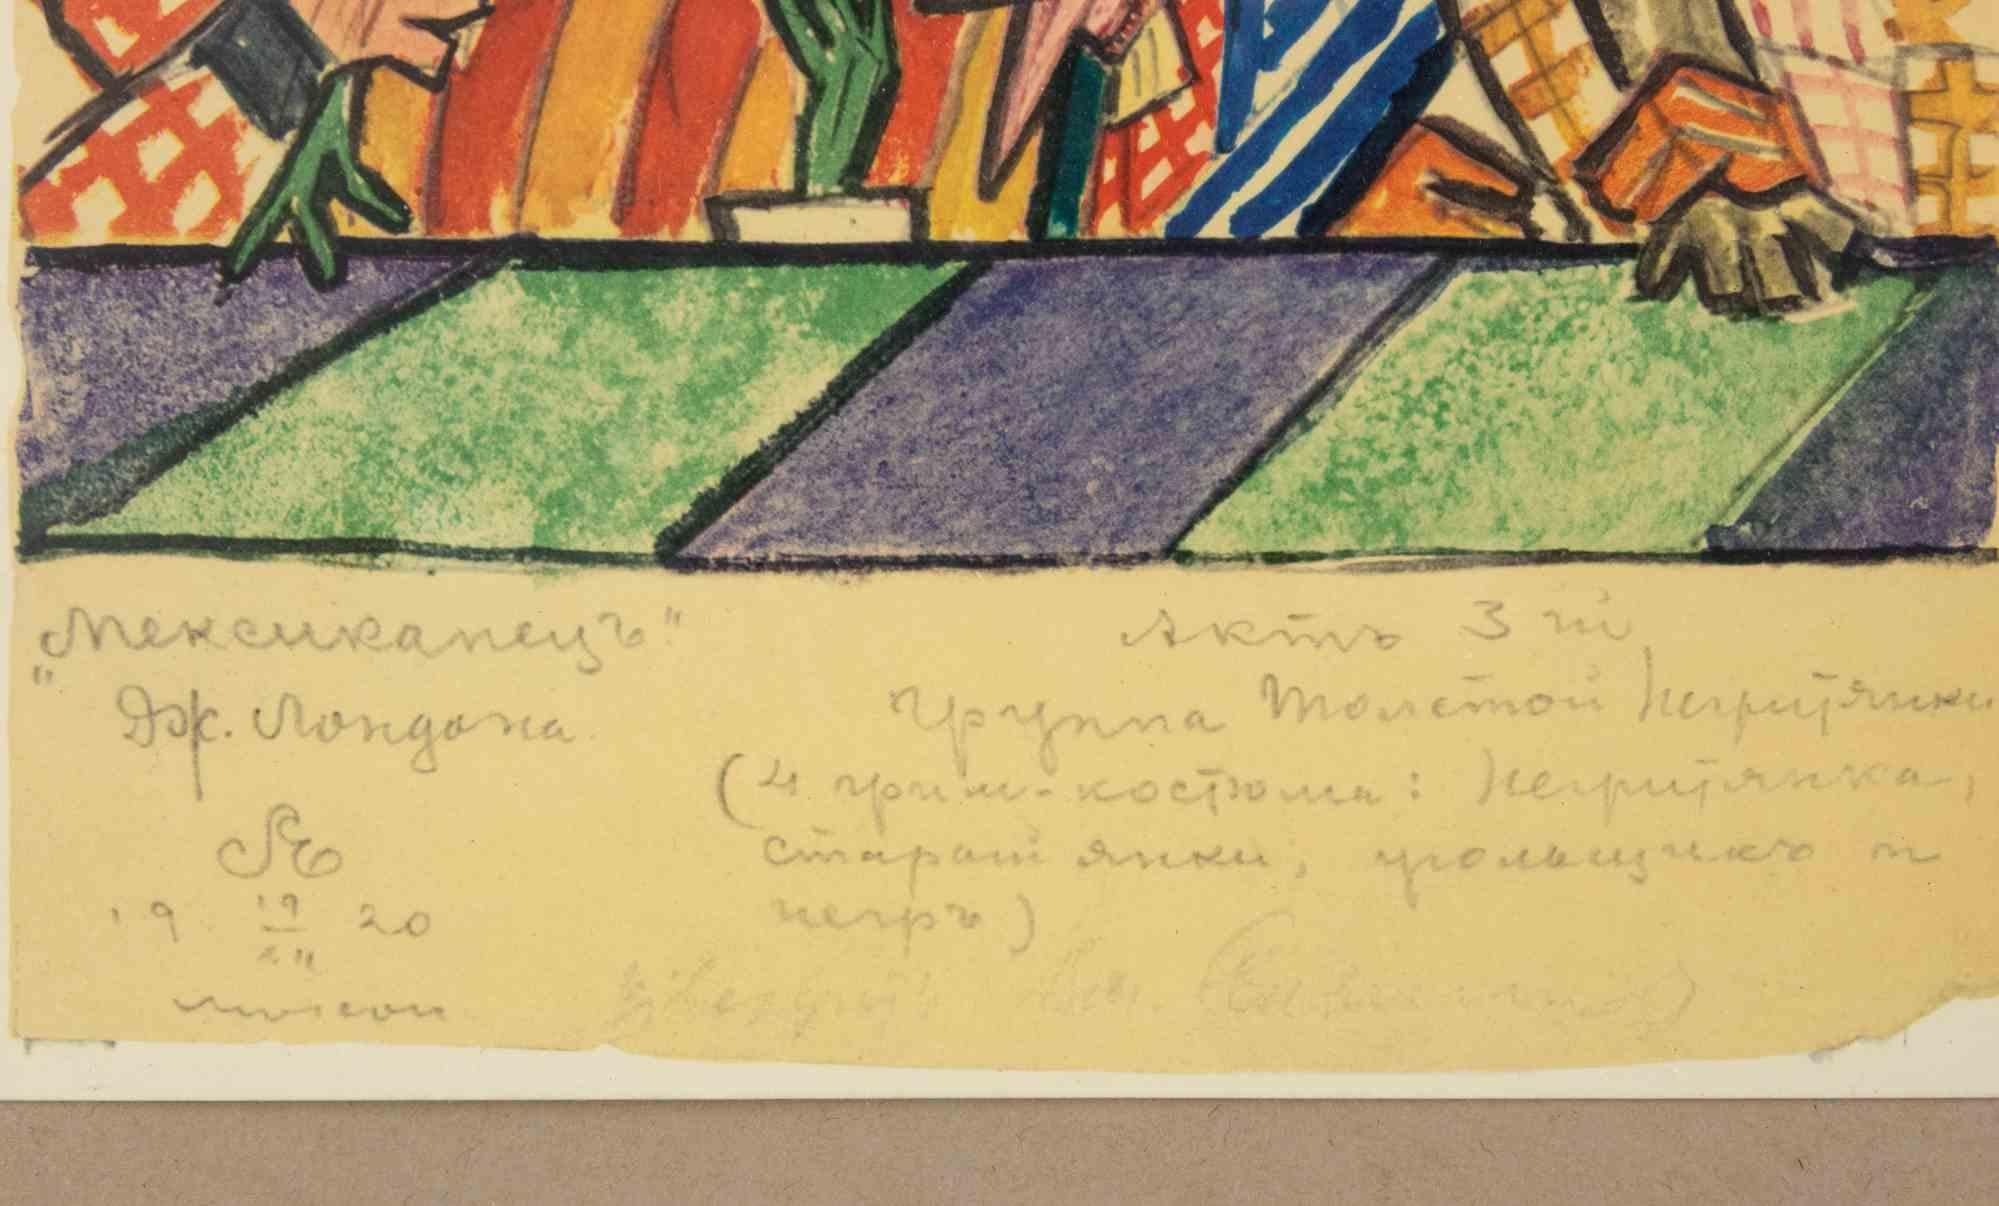 „Мексиканецъ"
Дж. Лондона
SE
19 19/XII 20
Moscou
Актъ 3ій
Группа Толстой Негритянки
(4 грим-костюма: Негритянка,
старый янки, угольщикъ и
негръ)